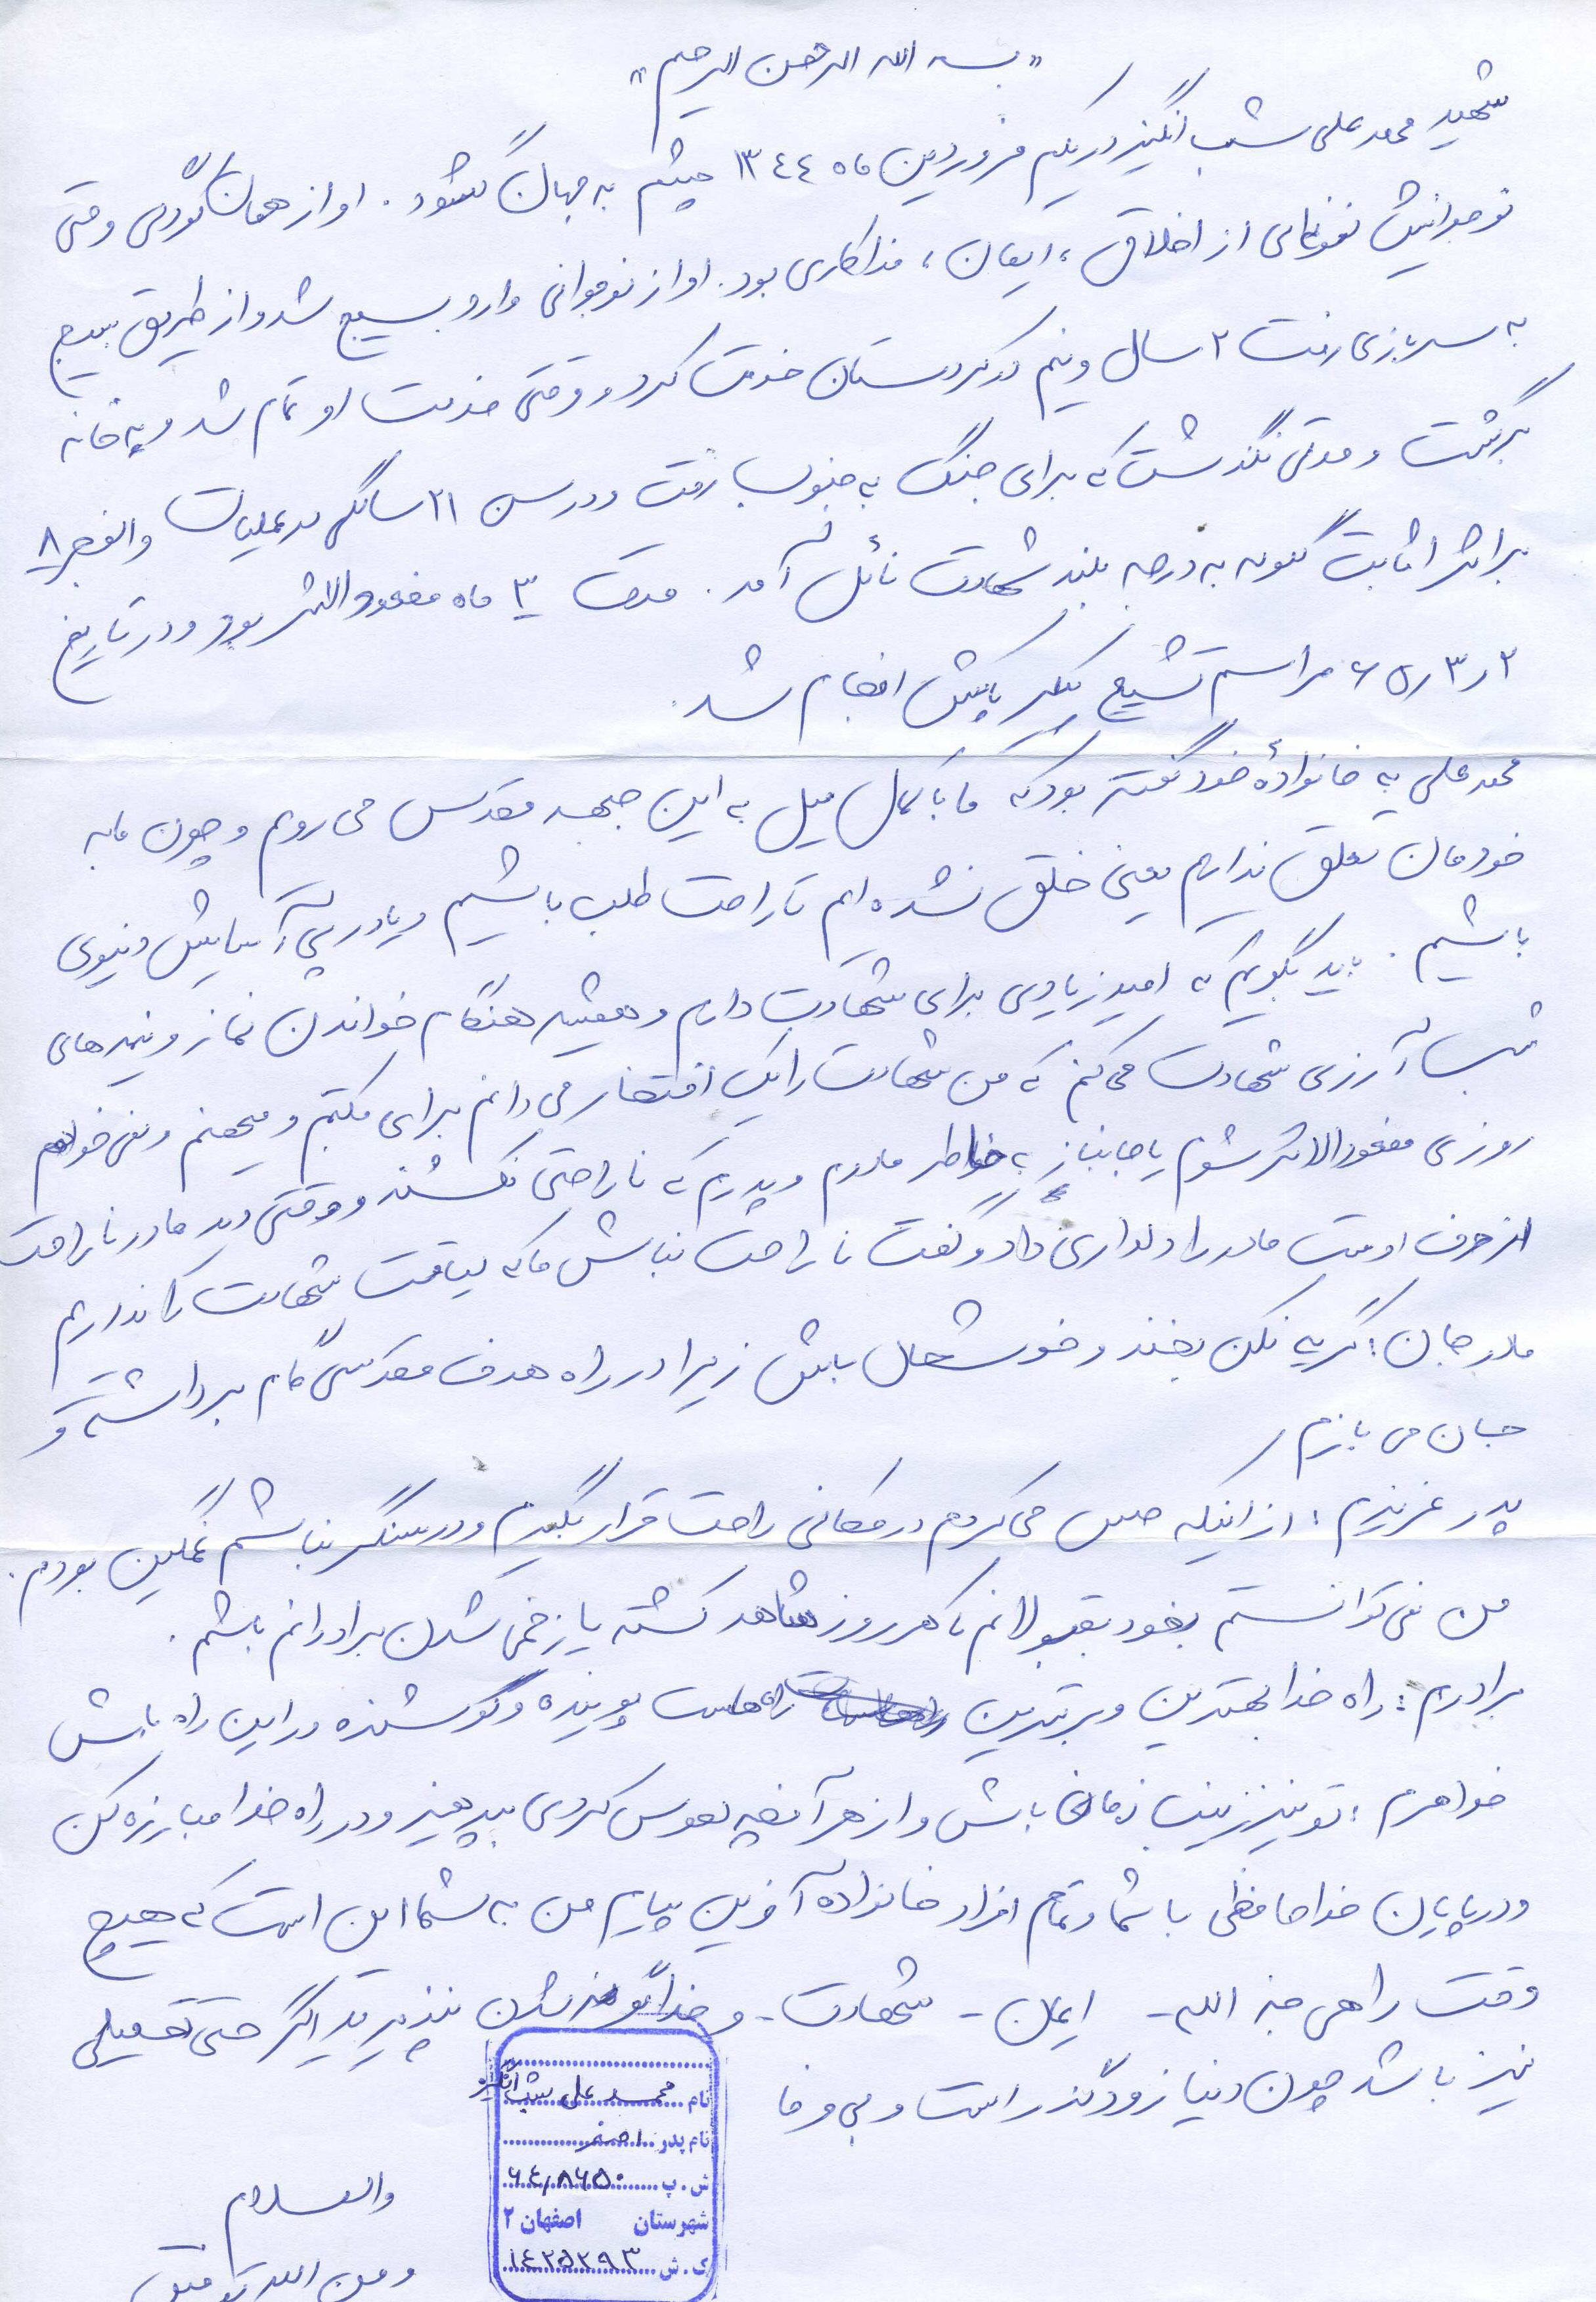 «بسم الله الرحمن الرحیم»
شهید محمد علی شب انگیز در یکم فروردین ماه ۱۳۴۴ چشم به جهان گشود. او از همان کودکی و حتی
نوجوانیش نمونه‌ای از اخلاق، ایمان، فداکاری بود. او از نوجوانی وارد بسیج شد و از طریق بسیج
به سربازی رفت ۲ سال و نیم در کردستان خدمت کرد و وقتی خدمت او تمام شد و به خانه
برگشت و مدتی نگذشت که برای جنگ به جنوب رفت و در سن ۲۱ سالگی در عملیات والفجر ۸
بر اثر اثابت گلوله به درجه بلند شهادت نائل آمد. مدت ۳ ماه مفقودالاثر بود و در تاریخ
۲ر۳ر۶۵ مراسم تشییع پیکر پاکش انجام شد.
محمد علی به خانوادهٔ خود گفته بود که ما با کمال میل به این جبهه مقدس می رویم و چون ما به
خودمان تعلق نداریم یعنی خلق نشده ایم تا راحت طلب باشیم و یا در پی آسایش دنیوی
باشیم. باید بگویم که امید زیادی برای شهادت دارم و همیشه هنگام خواندن نماز و نیمه‌های
شب آرزوی شهادت می کنم که من شهادت را یک افتخار می دانم برای مکتبم و میهنم و نمی خواهم
روزی مفقودالاثر شوم یا جانباز به خاطر مادرم و پدرم که ناراحتی نکشند و وقتی دید مادر ناراحت
از حرف اوست مادر را دلداری داد و گفت ناراحت نباش ما که لیاقت شهادت را نداریم
مادر جان: گریه نکن بخند و خوشحال باش زیرا در راه هدف مقدسی گام برداشته و
جان می بازم
پدر عزیزم: از اینکه حس می کردم در مکانی راحت قرار بگیرم و در سنگر نباشم غمگین بودم.
من نمی توانستم بخود بقبولانم تا هر روز شاهد کشته یا زخمی شدن برادرانم باشم.
برادرم: راه خدا بهترین و برترین راه هاست پوینده و کوشنده در این راه باش
خواهرم: تو نیز زینب زمانی باش و از هر آنچه هوس کردی بپرهیز و در راه خدا مبارزه کن
و در پایان خداحافظی با شما و تمام افراد خانواده آخرین پیام من به شما این است که هیچ
وقت راهی جز الله - ایمان - شهادت - و خداگونه شدن نپذیرید اگر حتی تحمیلی
نیز باشد چون دنیا زودگذر است و بی وفا
والسلام
و من الله توفیق
نام محمد علی شب انگیز
نام پدر اصغر
ش . پ ۶۴۸۶۵۰
شهرستان اصفهان ۲
ک . ش ۱۴۲۵۲۹۳